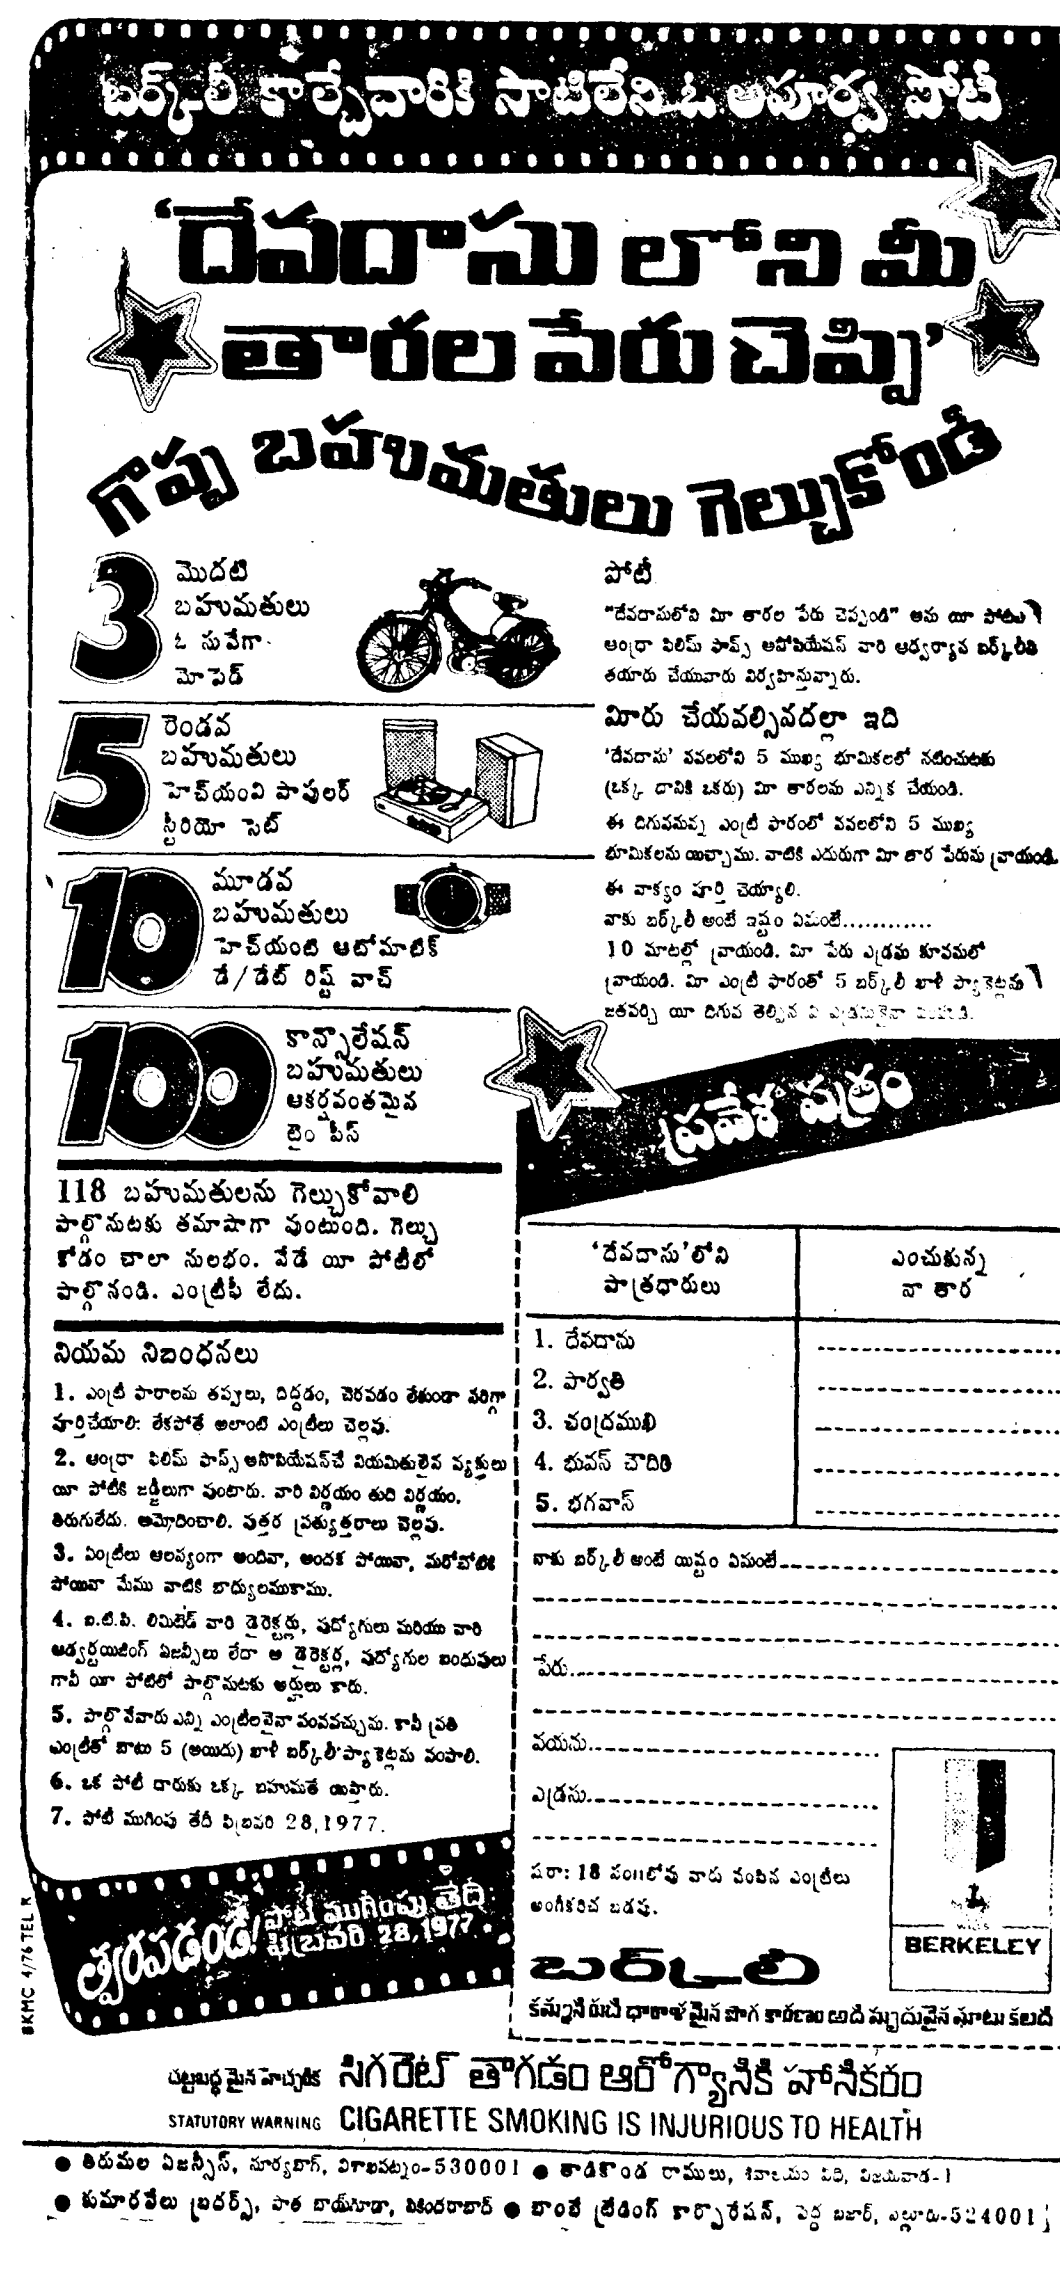 బర్క్‌లీ కాల్చేవారికి సాటిలేని ఓ అపూర్వ పోటీ
‘దేవదాసు లోని మీ
తారల పేరు చెప్పి’
గొప్ప బహుమతులు గెల్చుకోండి
3 మొదటి
బహుమతులు
ఓ సువేగా
మోపెడ్
5 రెండవ
బహుమతులు
హెచ్‌యంవి పాపులర్
స్టీరియో సెట్
10 మూడవ
బహుమతులు
హెచ్‌యంటి ఆటోమాటిక్
డే/డేట్ రిస్ట్ వాచ్
100 కాన్సొలేషన్
బహుమతులు
ఆకర్షవంతమైన
టైం పీస్
118 బహుమతులను గెల్చుకోవాలి
పాల్గొనుటకు తమాషాగా వుంటుంది. గెల్చు
కోడం చాలా సులభం. నేడే యీ పోటీలో
పాల్గొనండి. ఎంట్రీఫీ లేదు.
నియమ నిబంధనలు
1. ఎంట్రీ ఫారాలను తప్పులు, దిద్దడం, చెరపడం లేకుండా సరిగ్గా
పూర్తిచేయాలి: లేకపోతే అలాంటి ఎంట్రీలు చెల్లవు.
2. ఆంధ్రా ఫిలిమ్ ఫాన్స్ అసోసియేషన్‌చే నియమితులైన వ్యక్తులు
యీ పోటీకి జడ్జీలుగా వుంటారు. వారి నిర్ణయం తుది నిర్ణయం.
తిరుగులేదు. ఆమోదించాలి. వుత్తర ప్రత్యుత్తరాలు చెల్లవు.
3. ఏంట్రీలు ఆలస్యంగా అందినా, అందక పోయినా, మరోచోటికి
పోయినా మేము వాటికి బాధ్యులముకాము.
4. ఐ.టి.సి. లిమిటెడ్ వారి డైరెక్టర్లు, వుద్యోగులు మరియు వారి
ఆడ్వర్టయిజింగ్ ఏజన్సీలు లేదా ఆ డైరెక్టర్ల, వుద్యోగుల బంధువులు
గానీ యీ పోటీలో పాల్గొనుటకు అర్హులు కారు.
5. పాల్గొనేవారు ఎన్ని ఎంట్రీలనైనా పంపవచ్చును. కానీ ప్రతి
ఎంట్రీతో బాటు 5 (అయిదు) ఖాళీ బర్క్‌లీ ప్యాకెట్లను పంపాలి.
6. ఒక పోటీ దారుకు ఒక్క బహుమతే యిస్తారు.
7. పోటీ ముగింపు తేదీ ఫిబ్రవరి 28,1977.
త్వరపడండి! పోటీ ముగింపు తేదీ:
ఫిబ్రవరి 28,1977.
BKMC 4/76 TEL R
పోటీ
“దేవదాసులోని మీ తారల పేరు చెప్పండి” అను యీ పోటీని
ఆంధ్రా ఫిలిమ్ ఫాన్స్ అసోసియేషన్ వారి ఆధ్వర్యాన బర్క్‌లీని
తయారు చేయువారు నిర్వహిస్తున్నారు.
మీరు చేయవల్సినదల్లా ఇది
‘దేవదాసు’ నవలలోని 5 ముఖ్య భూమికలలో నటించుటకు
(ఒక్క దానికి ఒకరు) మీ తారలను ఎన్నిక చేయండి.
ఈ దిగువనున్న ఎంట్రీ ఫారంలో నవలలోని 5 ముఖ్య
భూమికలను యిచ్చాము. వాటికి ఎదురుగా మీ తార పేరును వ్రాయండి.
ఈ వాక్యం పూర్తి చెయ్యాలి.
నాకు బర్క్‌లీ అంటే ఇష్టం ఏమంటే............
10 మాటల్లో వ్రాయండి. మీ పేరు ఎడ్రసు కూపనులో
వ్రాయండి. మీ ఎంట్రీ ఫారంతో 5 బర్క్‌లీ ఖాళీ ప్యాకెట్లను
జతపర్చి యీ దిగువ తెల్పిన ఏ ఎడ్రసుకైనా పంపండి.
ప్రవేశ పత్రం
‘దేవదాసు’లోని
పాత్రధారులు
ఎంచుకున్న
నా తార
1. దేవదాసు
2. పార్వతి
3. చంద్రముఖి
4. భువన్ చౌదిరి
5. భగవాన్
నాకు బర్క్‌లీ అంటే యిష్టం ఏమంటే
పేరు
వయసు
ఎడ్రసు
షరా: 18 సం॥లోపు వారు పంపిన ఎంట్రీలు
అంగీకరించ బడవు.
WILLS
BERKELEY
బర్క్‌లీ
కమ్మని రుచి ధారాళమైన పొగ కారణం అది మృదువైన ఘాటు కలది
చట్టబద్ధమైన హెచ్చరిక సిగరెట్ తాగడం ఆరోగ్యానికి హానికరం
STATUTORY WARNING CIGARETTE SMOKING IS INJURIOUS TO HEALTH
● తిరుమల ఏజన్సీస్, సూర్యబాగ్, విశాఖపట్నం-530001 ● తాడికొండ రాములు, శివాలయం వీధి, విజయవాడ-1
● కుమారవేలు బ్రదర్స్, పాత బాయ్‌గూడా, సికిందరాబాద్ ● బాంబే ట్రేడింగ్ కార్పొరేషన్, పెద్ద బజార్, నెల్లూరు-524001